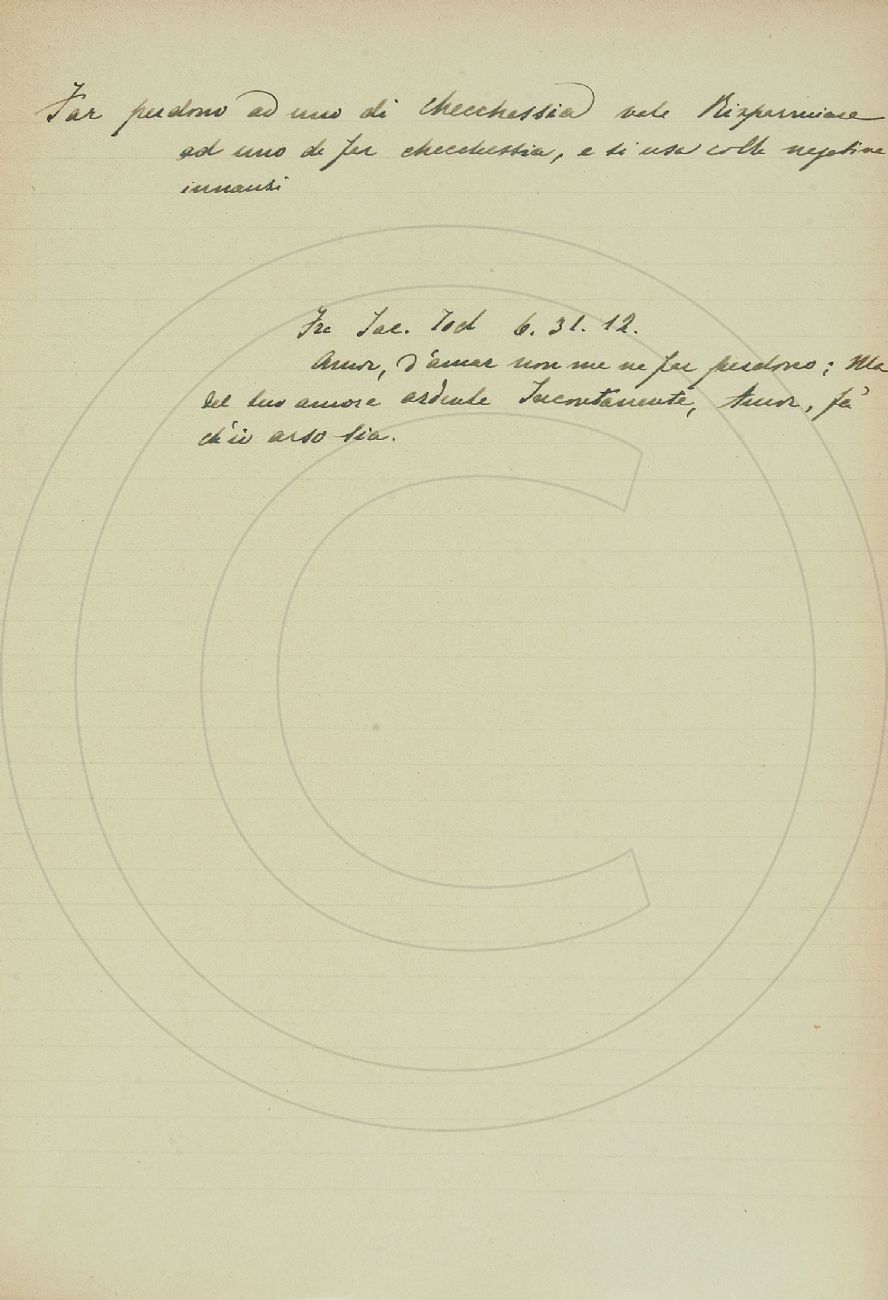 Far perdono ad uno di checchessia vale Risparmiare
ad uno di far checchessia, e si usa colla negativa
innanzi
Fr. Jac. Tod 6. 31. 12.
Amor, d'amar non me ne far perdono; Ma
del tuo amore ardente Incontanente, Amor, fa'
ch'io arso sia.